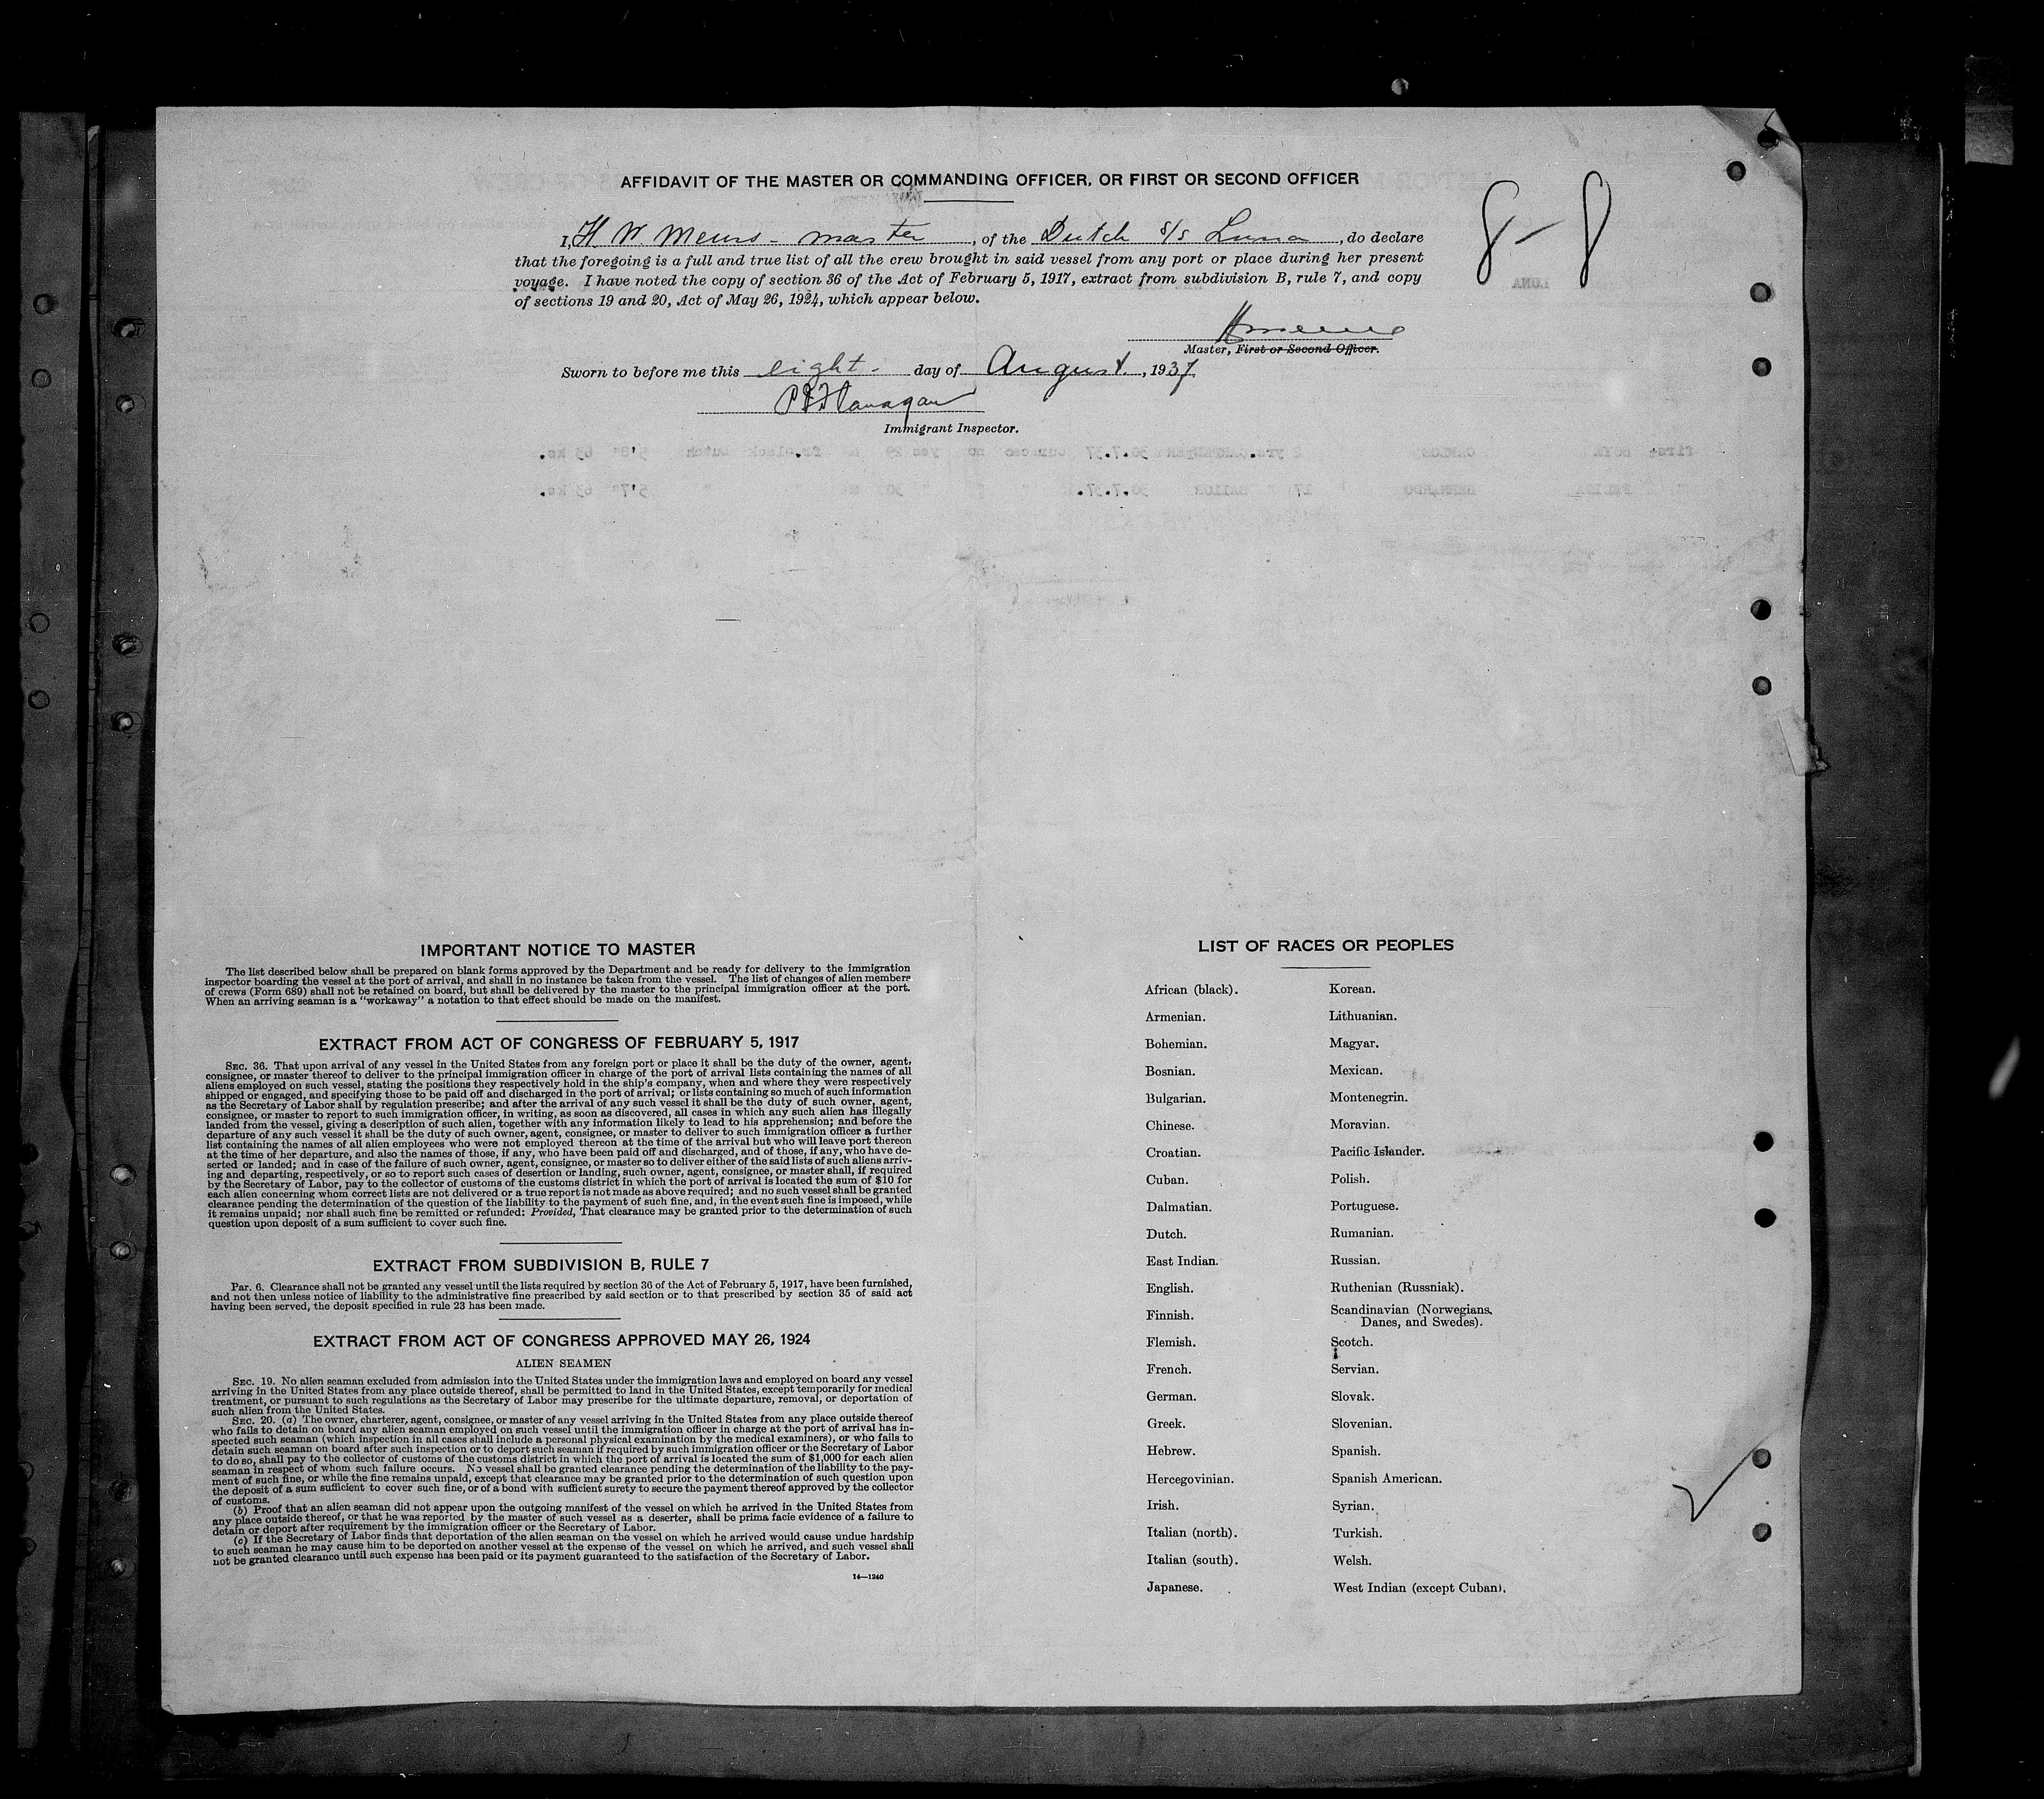 AFFIDAVIT OF THE MASTER OR COMMANDING OFFICER, OR FIRST OR SECOND OFFICER
8-8
I, H. W. Meurs - master, of the Dutch s/s Luna, do declare
that the foregoing is a full and true list of all the crew brought in said vessel from any port or place during her present
voyage. I have noted the copy of section 36 of the Act of February 5, 1917, extract from subdivision B, rule 7, and copy
of sections 19 and 20, Act of May 26, 1924, which appear below.
Master, First or Second Officer.
Sworn to before me this eight - day of August, 1937
Flanagan
Immigrant Inspector.
IMPORTANT NOTICE TO MASTER
The list described below shall be prepared on blank forms approved by the Department and be ready for delivery to the immigration
inspector boarding the vessel at the port of arrival, and shall in no instance be taken from the vessel. The list of changes of alien members
of crews (Form 689) shall not be retained on board, but shall be delivered by the master to the principal immigration officer at the port.
When an arriving seaman is a "workaway" a notation to that effect should be made on the manifest.
EXTRACT FROM ACT OF CONGRESS OF FEBRUARY 5, 1917
SEC. 36. That upon arrival of any vessel in the United States from any foreign port or place it shall be the duty of the owner, agent,
consignee, or master thereof to deliver to the principal immigration officer in charge of the port of arrival lists containing the names of all
aliens employed on such vessel, stating the positions they respectively hold in the ship's company, when and where they were respectively
shipped or engaged, and specifying those to be paid off and discharged in the port of arrival; or lists containing so much of such information
as the Secretary of Labor shall by regulation prescribe; and after the arrival of any such vessel it shall be the duty of such owner, agent,
consignee, or master to report to such immigration officer, in writing, as soon as discovered, all cases in which any such alien has illegally
landed from the vessel, giving a description of such alien, together with any information likely to lead to his apprehension; and before the
departure of any such vessel it shall be the duty of such owner, agent, consignee, or master to deliver to such immigration officer a further
list containing the names of all alien employees who were not employed thereon at the time of the arrival but who will leave port thereon
at the time of her departure, and also the names of those, if any, who have been paid off and discharged, and of those, if any, who have de-
serted or landed; and in case of the failure of such owner, agent, consignee, or master so to deliver either of the said lists of such aliens arriv-
ing and departing, respectively, or so to report such cases of desertion or landing, such owner, agent, consignee, or master shall, if required
by the Secretary of Labor, pay to the collector of customs of the customs district in which the port of arrival is located the sum of $10 for
each alien concerning whom correct lists are not delivered or a true report is not made as above required; and no such vessel shall be granted
clearance pending the determination of the question of the liability to the payment of such fine, and, in the event such fine is imposed, while
it remains unpaid; nor shall such fine be remitted or refunded: Provided, That clearance may be granted prior to the determination of such
question upon deposit of a sum sufficient to cover such fine.
EXTRACT FROM SUBDIVISION B, RULE 7
Par. 6. Clearance shall not be granted any vessel until the lists required by section 36 of the Act of February 5, 1917, have been furnished,
and not then unless notice of liability to the administrative fine prescribed by said section or to that prescribed by section 35 of said act
having been served, the deposit specified in rule 23 has been made.
EXTRACT FROM ACT OF CONGRESS APPROVED MAY 26, 1924
ALIEN SEAMEN
SEC. 19. No alien seaman excluded from admission into the United States under the immigration laws and employed on board any vessel
arriving in the United States from any place outside thereof, shall be permitted to land in the United States, except temporarily for medical
treatment, or pursuant to such regulations as the Secretary of Labor may prescribe for the ultimate departure, removal, or deportation of
such alien from the United States.
SEC. 20. (a) The owner, charterer, agent, consignee, or master of any vessel arriving in the United States from any place outside thereof
who fails to detain on board any alien seaman employed on such vessel until the immigration officer in charge at the port of arrival has in-
spected such seaman (which inspection in all cases shall include a personal physical examination by the medical examiners), or who fails to
detain such seaman on board after such inspection or to deport such seaman if required by such immigration officer or the Secretary of Labor
to do so, shall pay to the collector of customs of the customs district in which the port of arrival is located the sum of $1,000 for each alien
seaman in respect of whom such failure occurs. No vessel shall be granted clearance pending the determination of the liability to the pay-
ment of such fine, or while the fine remains unpaid, except that clearance may be granted prior to the determination of such question upon
the deposit of a sum sufficient to cover such fine, or of a bond with sufficient surety to secure the payment thereof approved by the collector
of customs.
(b) Proof that an alien seaman did not appear upon the outgoing manifest of the vessel on which he arrived in the United States from
any place outside thereof, or that he was reported by the master of such vessel as a deserter, shall be prima facie evidence of a failure to
detain or deport after requirement by the immigration officer or the Secretary of Labor.
(c) If the Secretary of Labor finds that deportation of the alien seaman on the vessel on which he arrived would cause undue hardship
to such seaman he may cause him to be deported on another vessel at the expense of the vessel on which he arrived, and such vessel shall
not be granted clearance until such expense has been paid or its payment guaranteed to the satisfaction of the Secretary of Labor.
14—1240
LIST OF RACES OR PEOPLES
African (black).
Armenian.
Bohemian.
Bosnian.
Bulgarian.
Chinese.
Croatian.
Cuban.
Dalmatian.
Dutch.
East Indian.
English.
Finnish.
Flemish.
French.
German.
Greek.
Hebrew.
Hercegovinian.
Irish.
Italian (north).
Italian (south).
Japanese.
Korean.
Lithuanian.
Magyar.
Mexican.
Montenegrin.
Moravian.
Pacific Islander.
Polish.
Portuguese.
Rumanian.
Russian.
Ruthenian (Russniak).
Scandinavian (Norwegians,
Danes, and Swedes).
Scotch.
Servian.
Slovak.
Slovenian.
Spanish.
Spanish American.
Syrian.
Turkish.
Welsh.
West Indian (except Cuban).